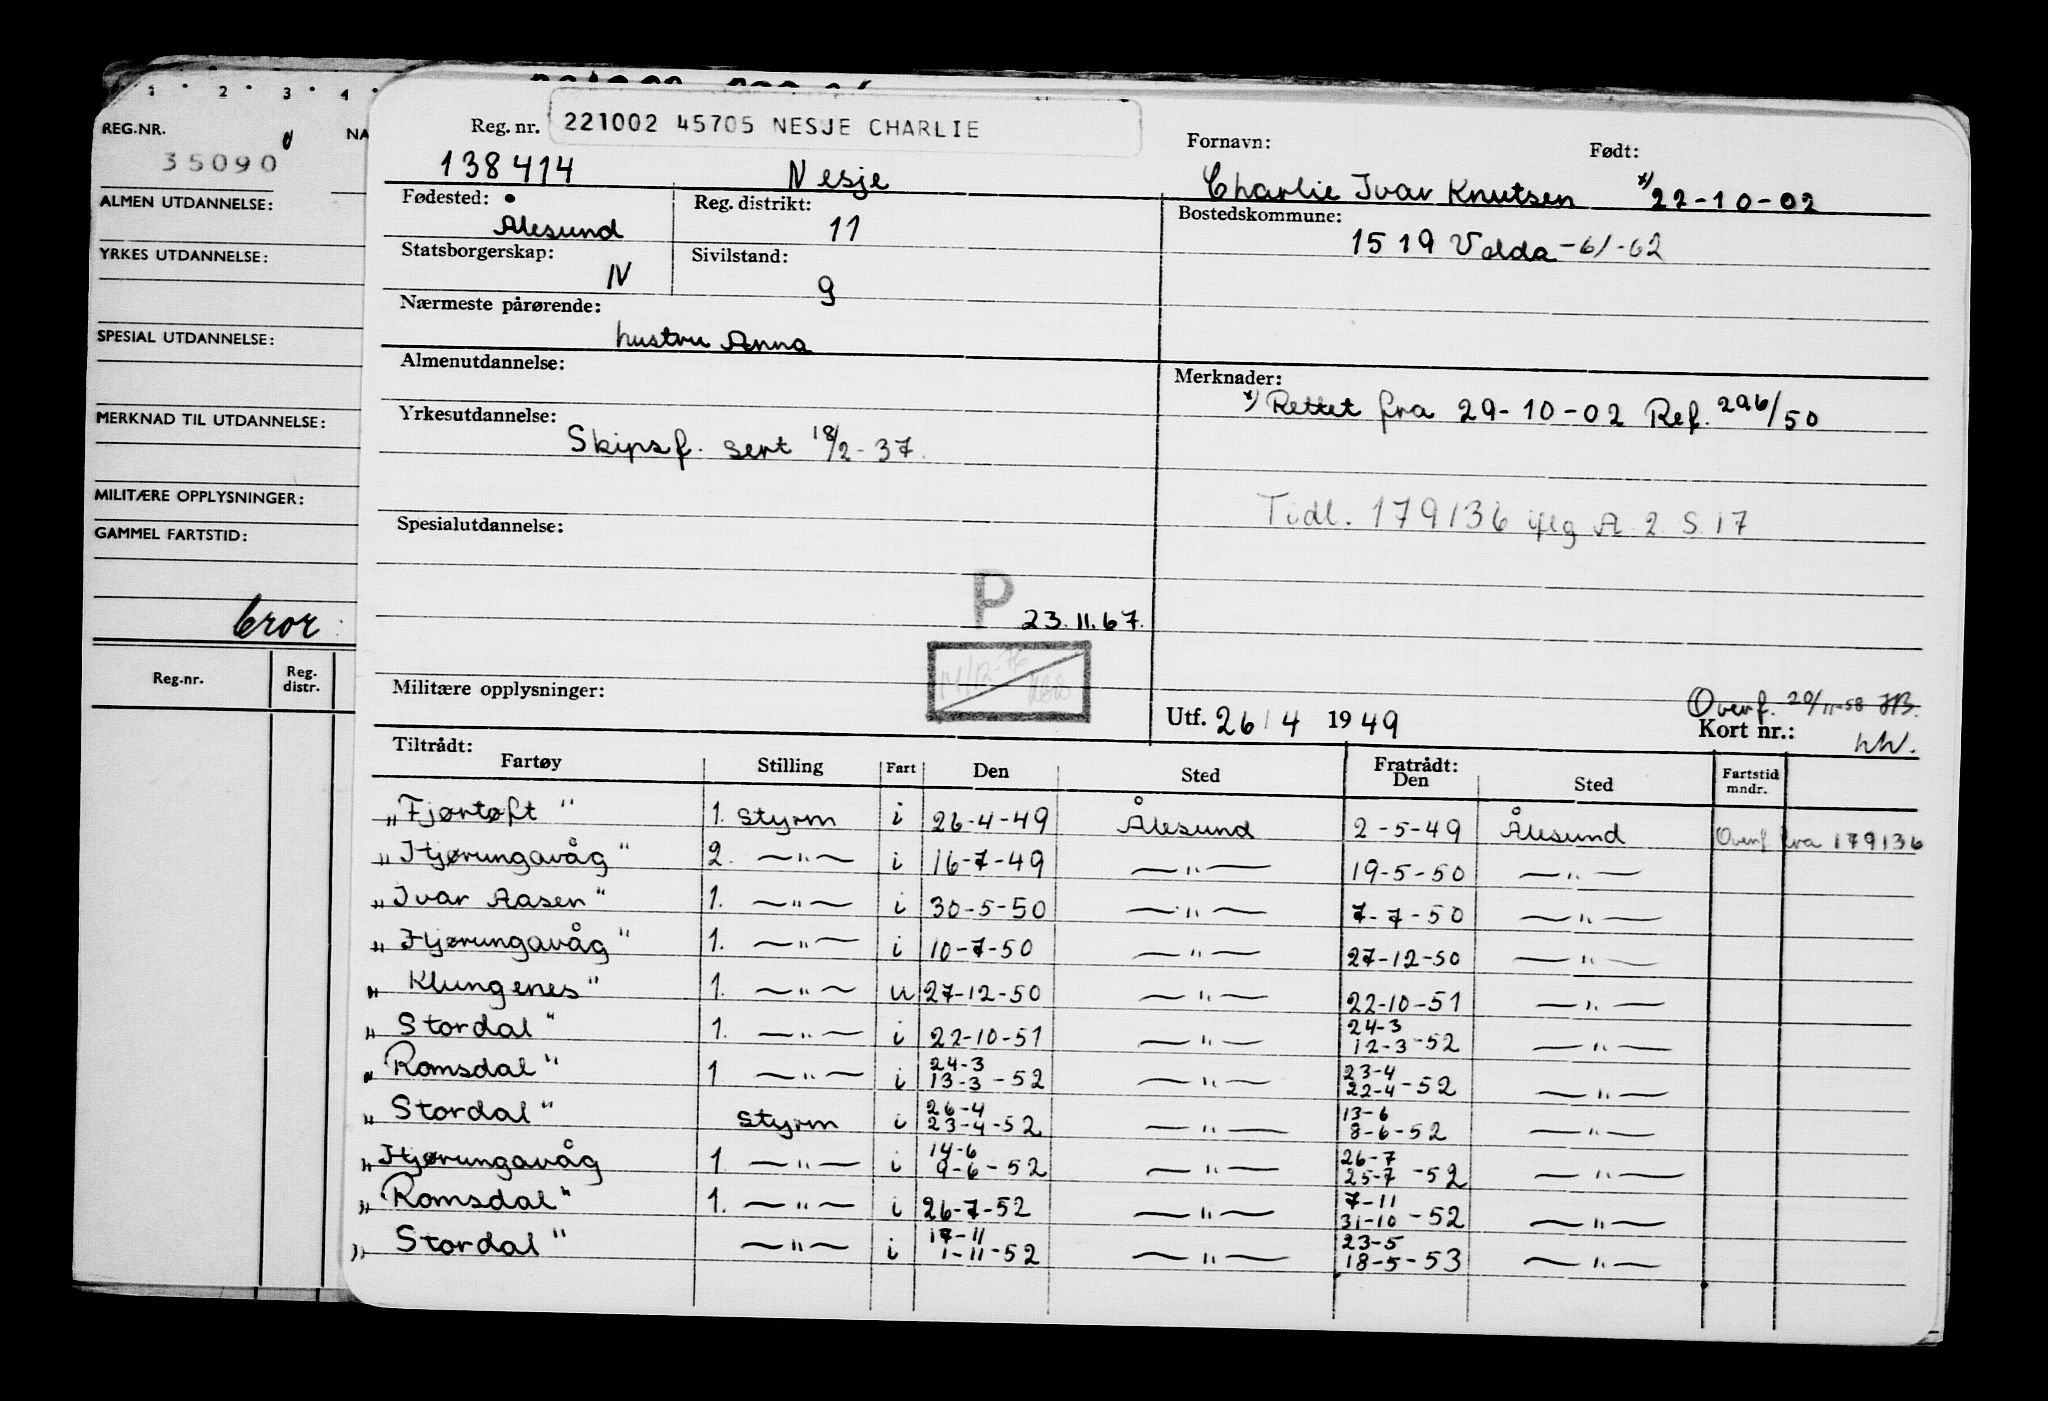 1 2 3 4
REG.NR. NA
35090
ALMEN UTDANNELSE:
YRKES UTDANNELSE:
SPESIAL UTDANNELSE:
MERKNAD TIL UTDANNELSE:
MILITÆRE OPPLYSNINGER:
GAMMEL FARTSTID:
Reg.nr. Reg. distr.
Reg. nr. 221002 45705 NESJE CHARLIE Fornavn: Født:
138414 Nesje Charlie Ivar Knutsen x) 22-10-02
Fødested: Reg. distrikt: Bostedskommune:
Ålesund 11 1519 Volda -61-62
Statsborgerskap: Sivilstand:
N g
Nærmeste pårørende:
hustru Anna
Almenutdannelse: Merknader:
x) Rettet fra 29-10-02 Ref. 296/50
Yrkesutdannelse:
Skipsf. sert 18/2-37.
Tidl. 179136 iflg A. 2. S. 17
Spesialutdannelse:
P 23.11.67.
Militære opplysninger:
Overf. 20/11-58 JB.
Utf. 26/4 1949 Kort nr.:
Tiltrådt: Fratrådt:
Fartøy Stilling Fart Den Sted Den Sted Fartstid mndr.
„Fjørtoft" 1. styrm i 26-4-49 Ålesund 2-5-49 Ålesund Overf fra 179136
„Hjørungavåg" 2. —"— i 16-7-49 —"— 19-5-50 —"—
„Ivar Aasen" 1. —"— i 30-5-50 —"— 7-7-50 —"—
„Hjørungavåg" 1. —"— i 10-7-50 —"— 27-12-50 —"—
„Klungenes" 1. —"— u 27-12-50 —"— 22-10-51 —"—
„Stordal" 1. —"— i 22-10-51 —"— 24-3 12-3-52 —"—
„Romsdal" 1 —"— i 24-3 13-3-52 —"— 23-4 22-4-52 —"—
„Stordal" styrm i 26-4 23-4-52 —"— 13-6 8-6-52 —"—
„Hjørungavåg 1 —"— i 14-6 9-6-52 —"— 26-7 25-7-52 —"—
„Romsdal" 1. —"— i 26-7-52 —"— 7-11 31-10-52 —"—
„Stordal" —"— i 17-11 1-11-52 —"— 23-5 18-5-53 —"—